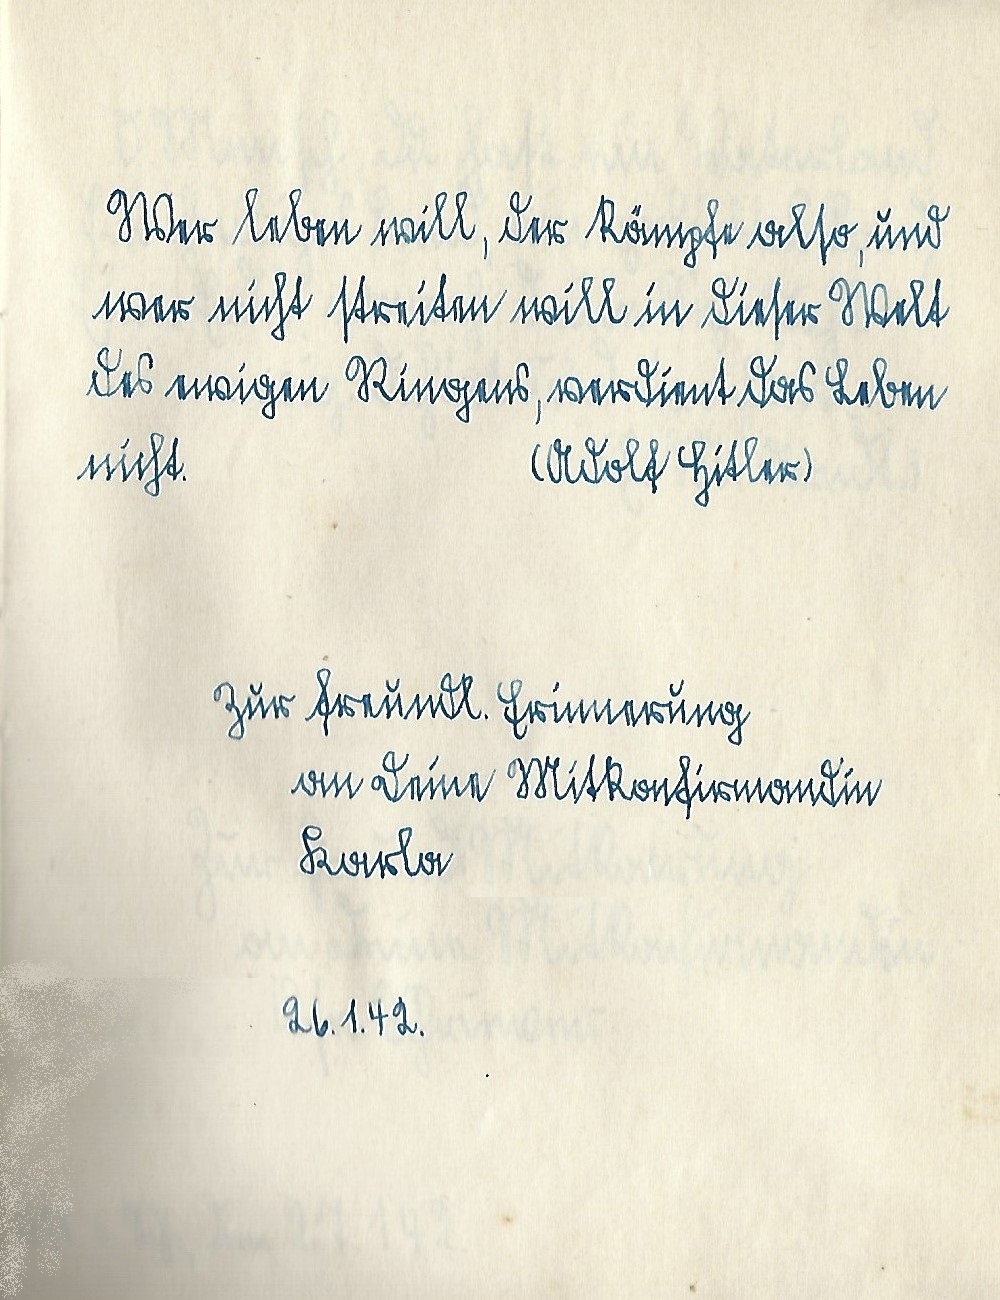 Wer leben will, der kämpfe also, und
wer nicht streiten will in dieser Welt
des ewigen Ringens, verdient das Leben
nicht. (Adolf Hitler)
Zur freundl. Erinnerung
an Deine Mitkonfirmandin
Karla
26.1.42.